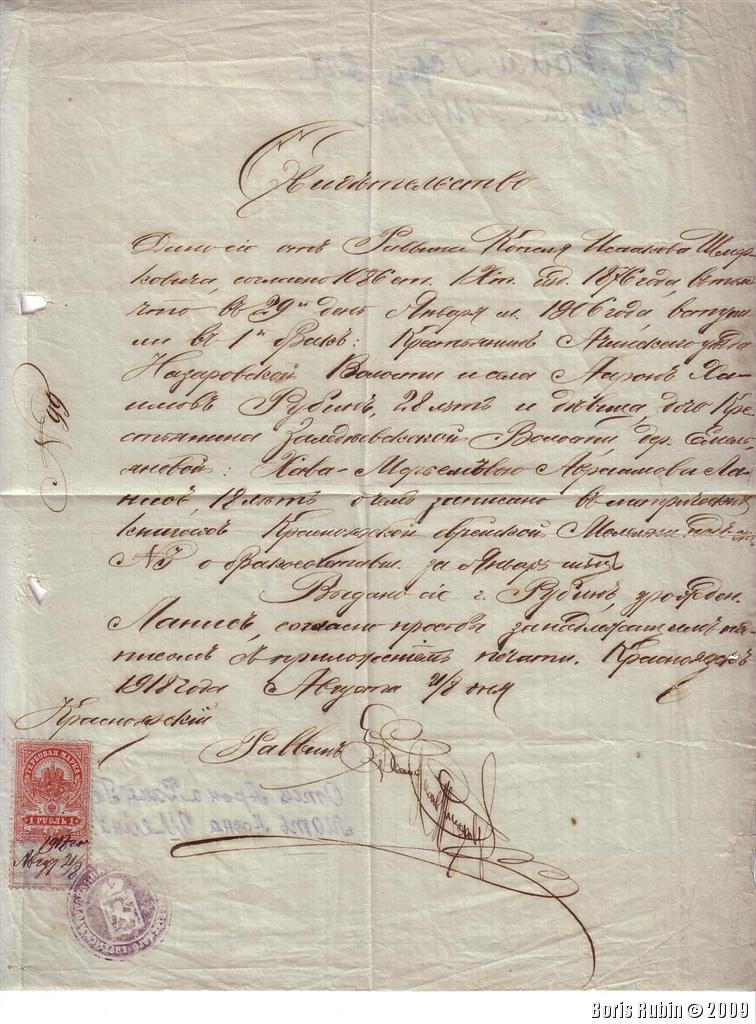 Свидѣтельство
Дано сіе отъ Раввина Копеля Исакова
ковича, согласно 1086 ст. IX т. 1876 года, въ томъ
что въ 29й день Января м. 1906 года, вступи
ли въ 1й бракъ: Крестьянинъ Ачинскаго уѣзда
Назаровской Волости и села Ааронъ Ха-
имовъ Рубинъ, 28 лѣтъ и дѣвица, дочь Кре-
стьянина Заледѣевской Волости, дер. Емель-
яновой: Хава- Авраамова Ла-
нисъ, 18 лѣтъ о чемъ записано въ метрическихъ
книгахъ Красноярской еврейской Молельни подъ
№3 о бракосочетавш. за Январь мѣсяцъ
Выдано сіе г. Рубинъ, урожден.
Ланисъ, согласно просьбѣ за надлежащимъ под-
писомъ и приложеніемъ печати. Красноярскъ
1918 года Августа 21/8 дня
Красноярскій
Раввинъ
№ 99
ГЕРБОВАЯ МАРКА
1 РУБЛЬ 1
1918 го
Авгус 21/8
Boris Rubin © 2009